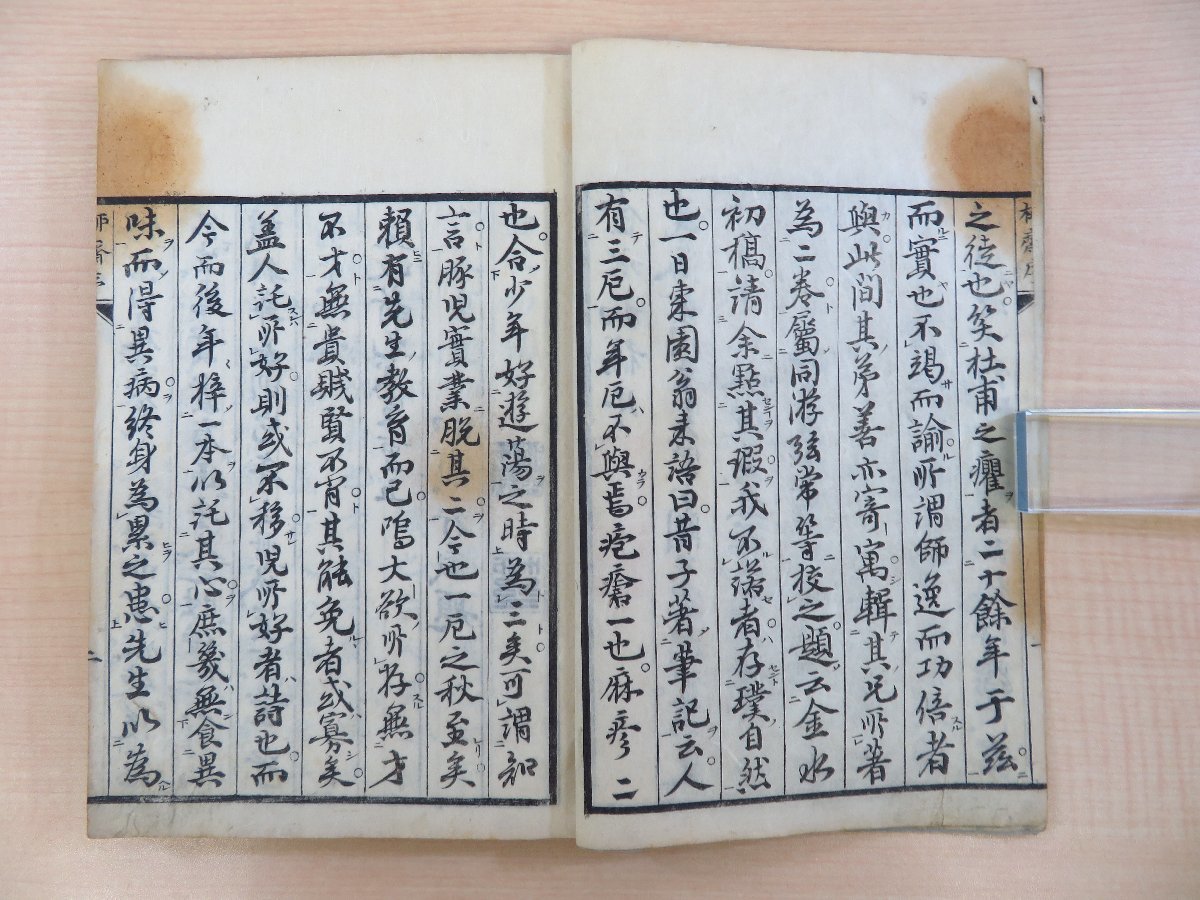 之徒也笑杜甫之癯者二十餘年于茲
而實也不竭而諭所謂師逸而功倍者
與此間其弟善亦寄寓輯其兄所著
為二卷屬同游弦常等校之題云金水
初稿請余點其瑕我不諾者存璞自然
也一日東園翁來語曰昔子著筆記云人
有三厄而年厄不與焉疱瘡一也麻疹二
也合少年好遊蕩之時為三矣可謂知
言豚児實業脫其二今也一厄之秋至矣
賴有先生教育而已嗚大欲所存無才
不才無貴賤賢不肖其能免者或寡矣
蓋人託所好則或不移児所好者詩也而
今而後年梓一本以託其心庶幾無食異
味而得異病終身為累之患先生以為